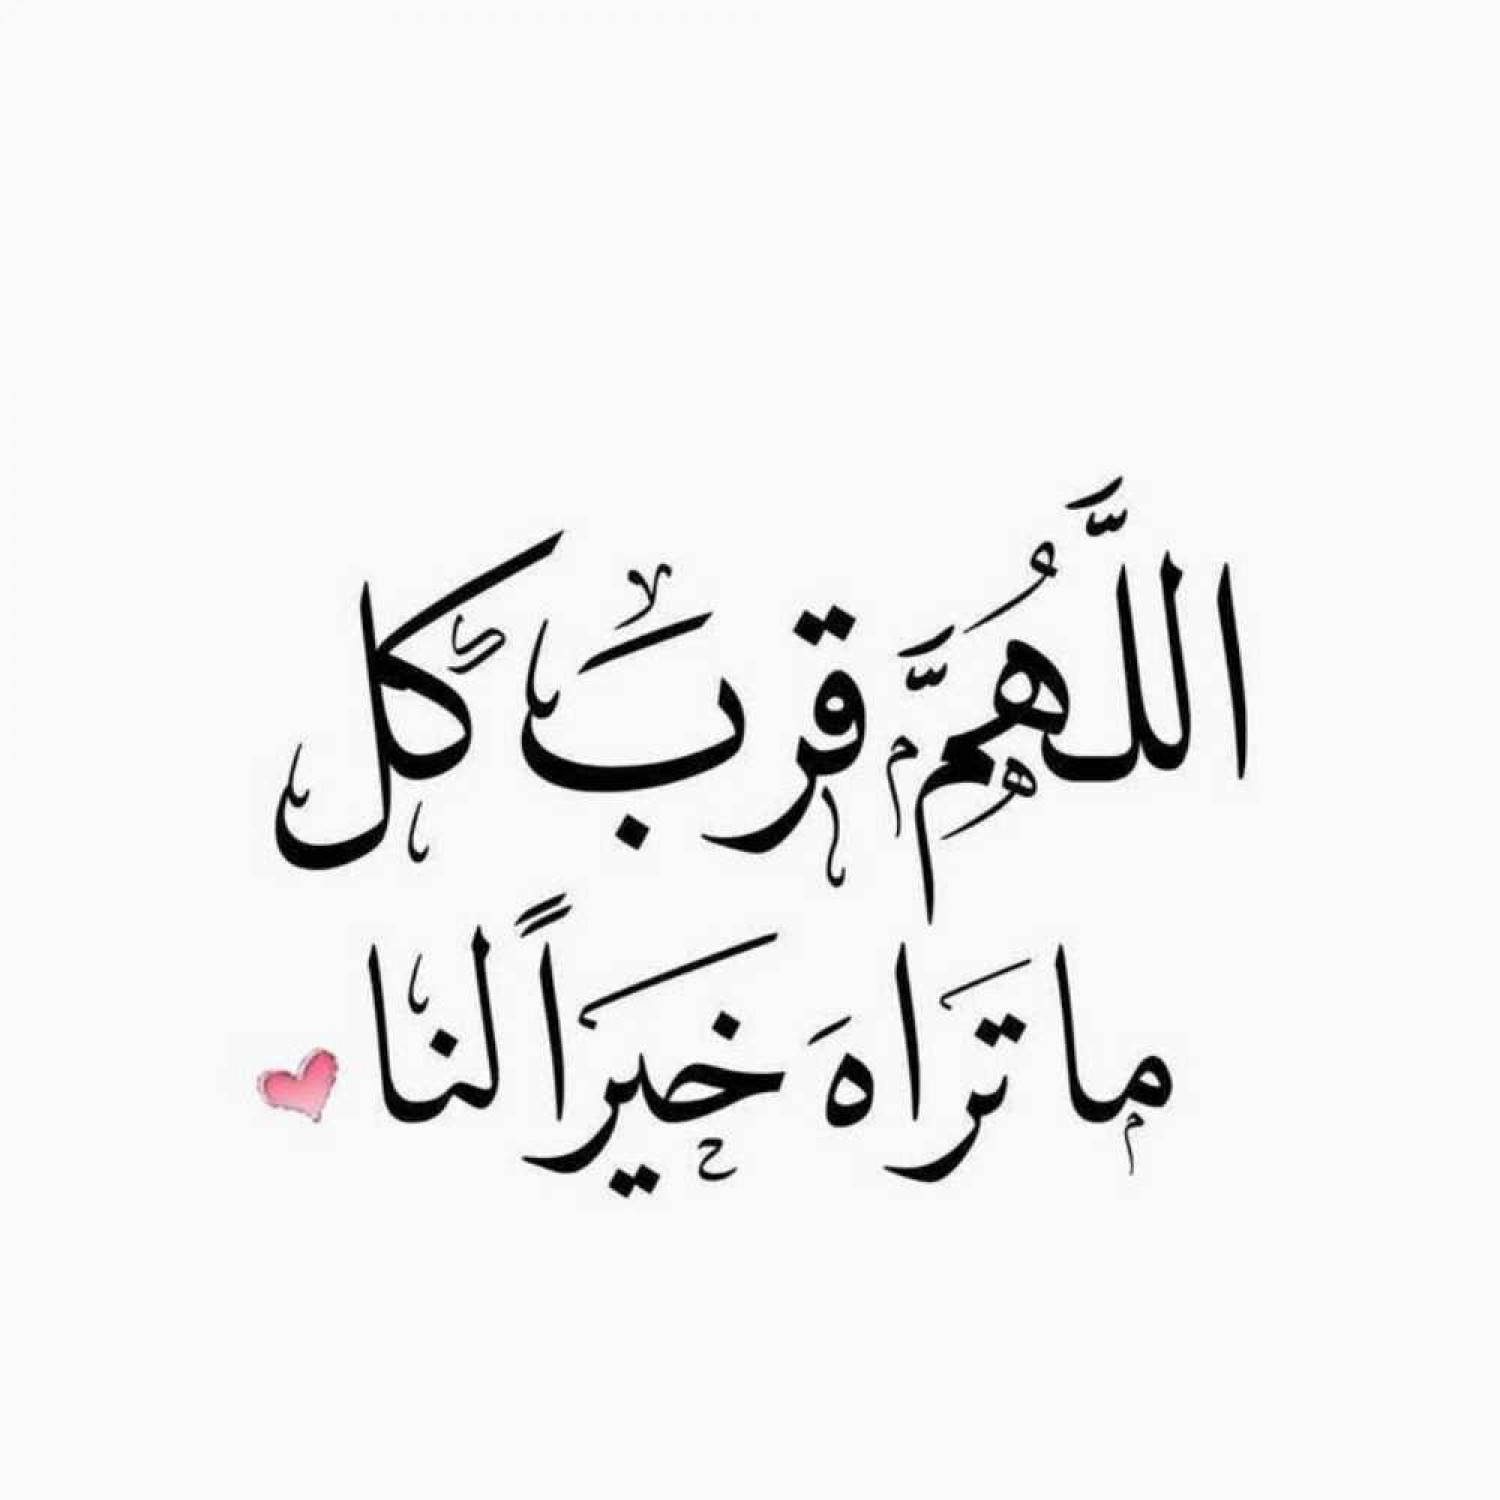 اللَّهُمَّ قربَ كل
ما تَراهَ خيَراً لنا